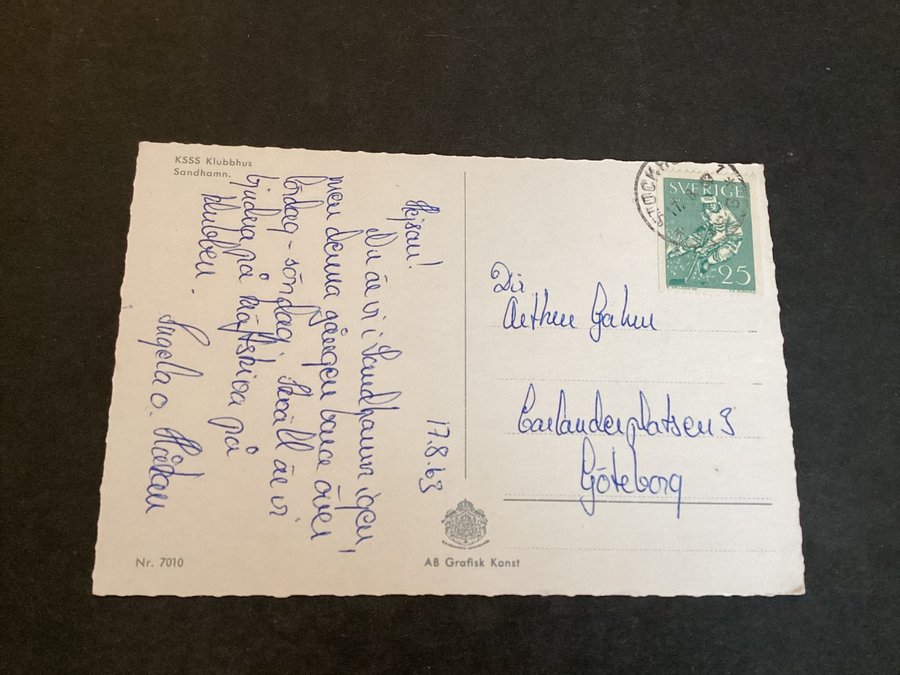 KSSS Klubbhus
Sandhamn.
17.8.63
Hejsan!
Nu är vi i Sandhamn igen,
men denna gången bara över
lördag - söndag. Ikväll är vi
bjudna på kräftskiva på
klubben.
Ingela o. Håkan
SVERIGE
25
Dir
Arthur Gahm
Carlanderplatsen 3
Göteborg
Nr. 7010
AB Grafisk Konst